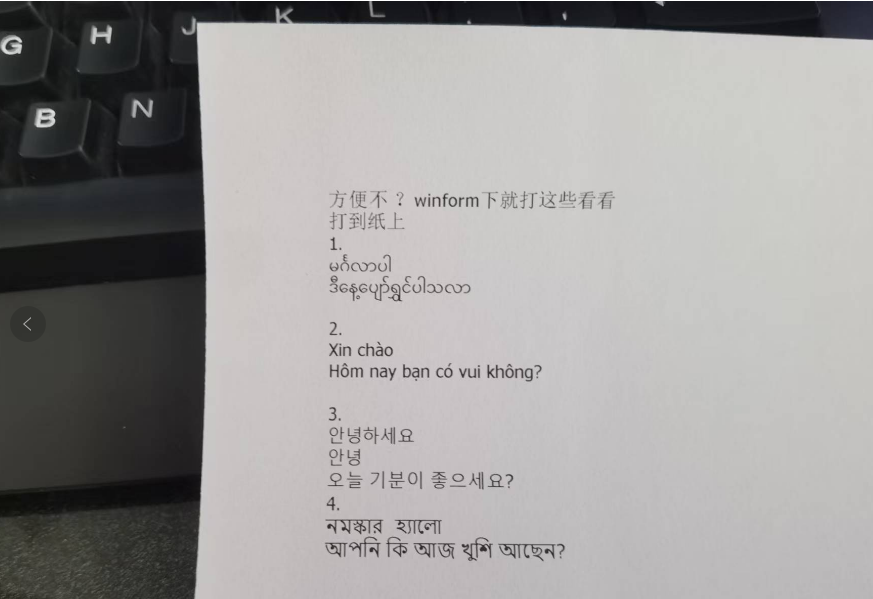 G H J K L
B N
方便不？winform下就打这些看看
打到纸上
1.
မင်္ဂလာပါ
ဒီနေ့ပျော်ရွှင်ပါသလာ
2.
Xin chào
Hôm nay bạn có vui không?
3.
안녕하세요
안녕
오늘 기분이 좋으세요?
4.
নমস্কার হ্যালো
আপনি কি আজ খুশি আছেন?